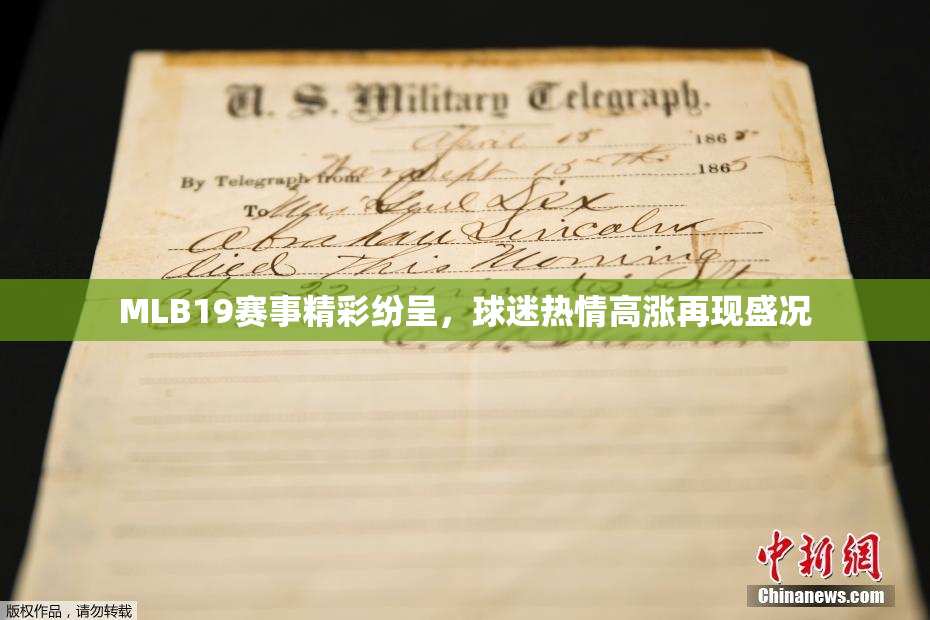 U. S. Military Telegraph.
April 15 1865
By Telegraph from War Dept 15th 1865
To Maj Genl Dix
Abraham Lincoln
died This Morning
at 22 minutes after
MLB19赛事精彩纷呈，球迷热情高涨再现盛况
E. M. Stanton
中新网
Chinanews.com
版权作品，请勿转载